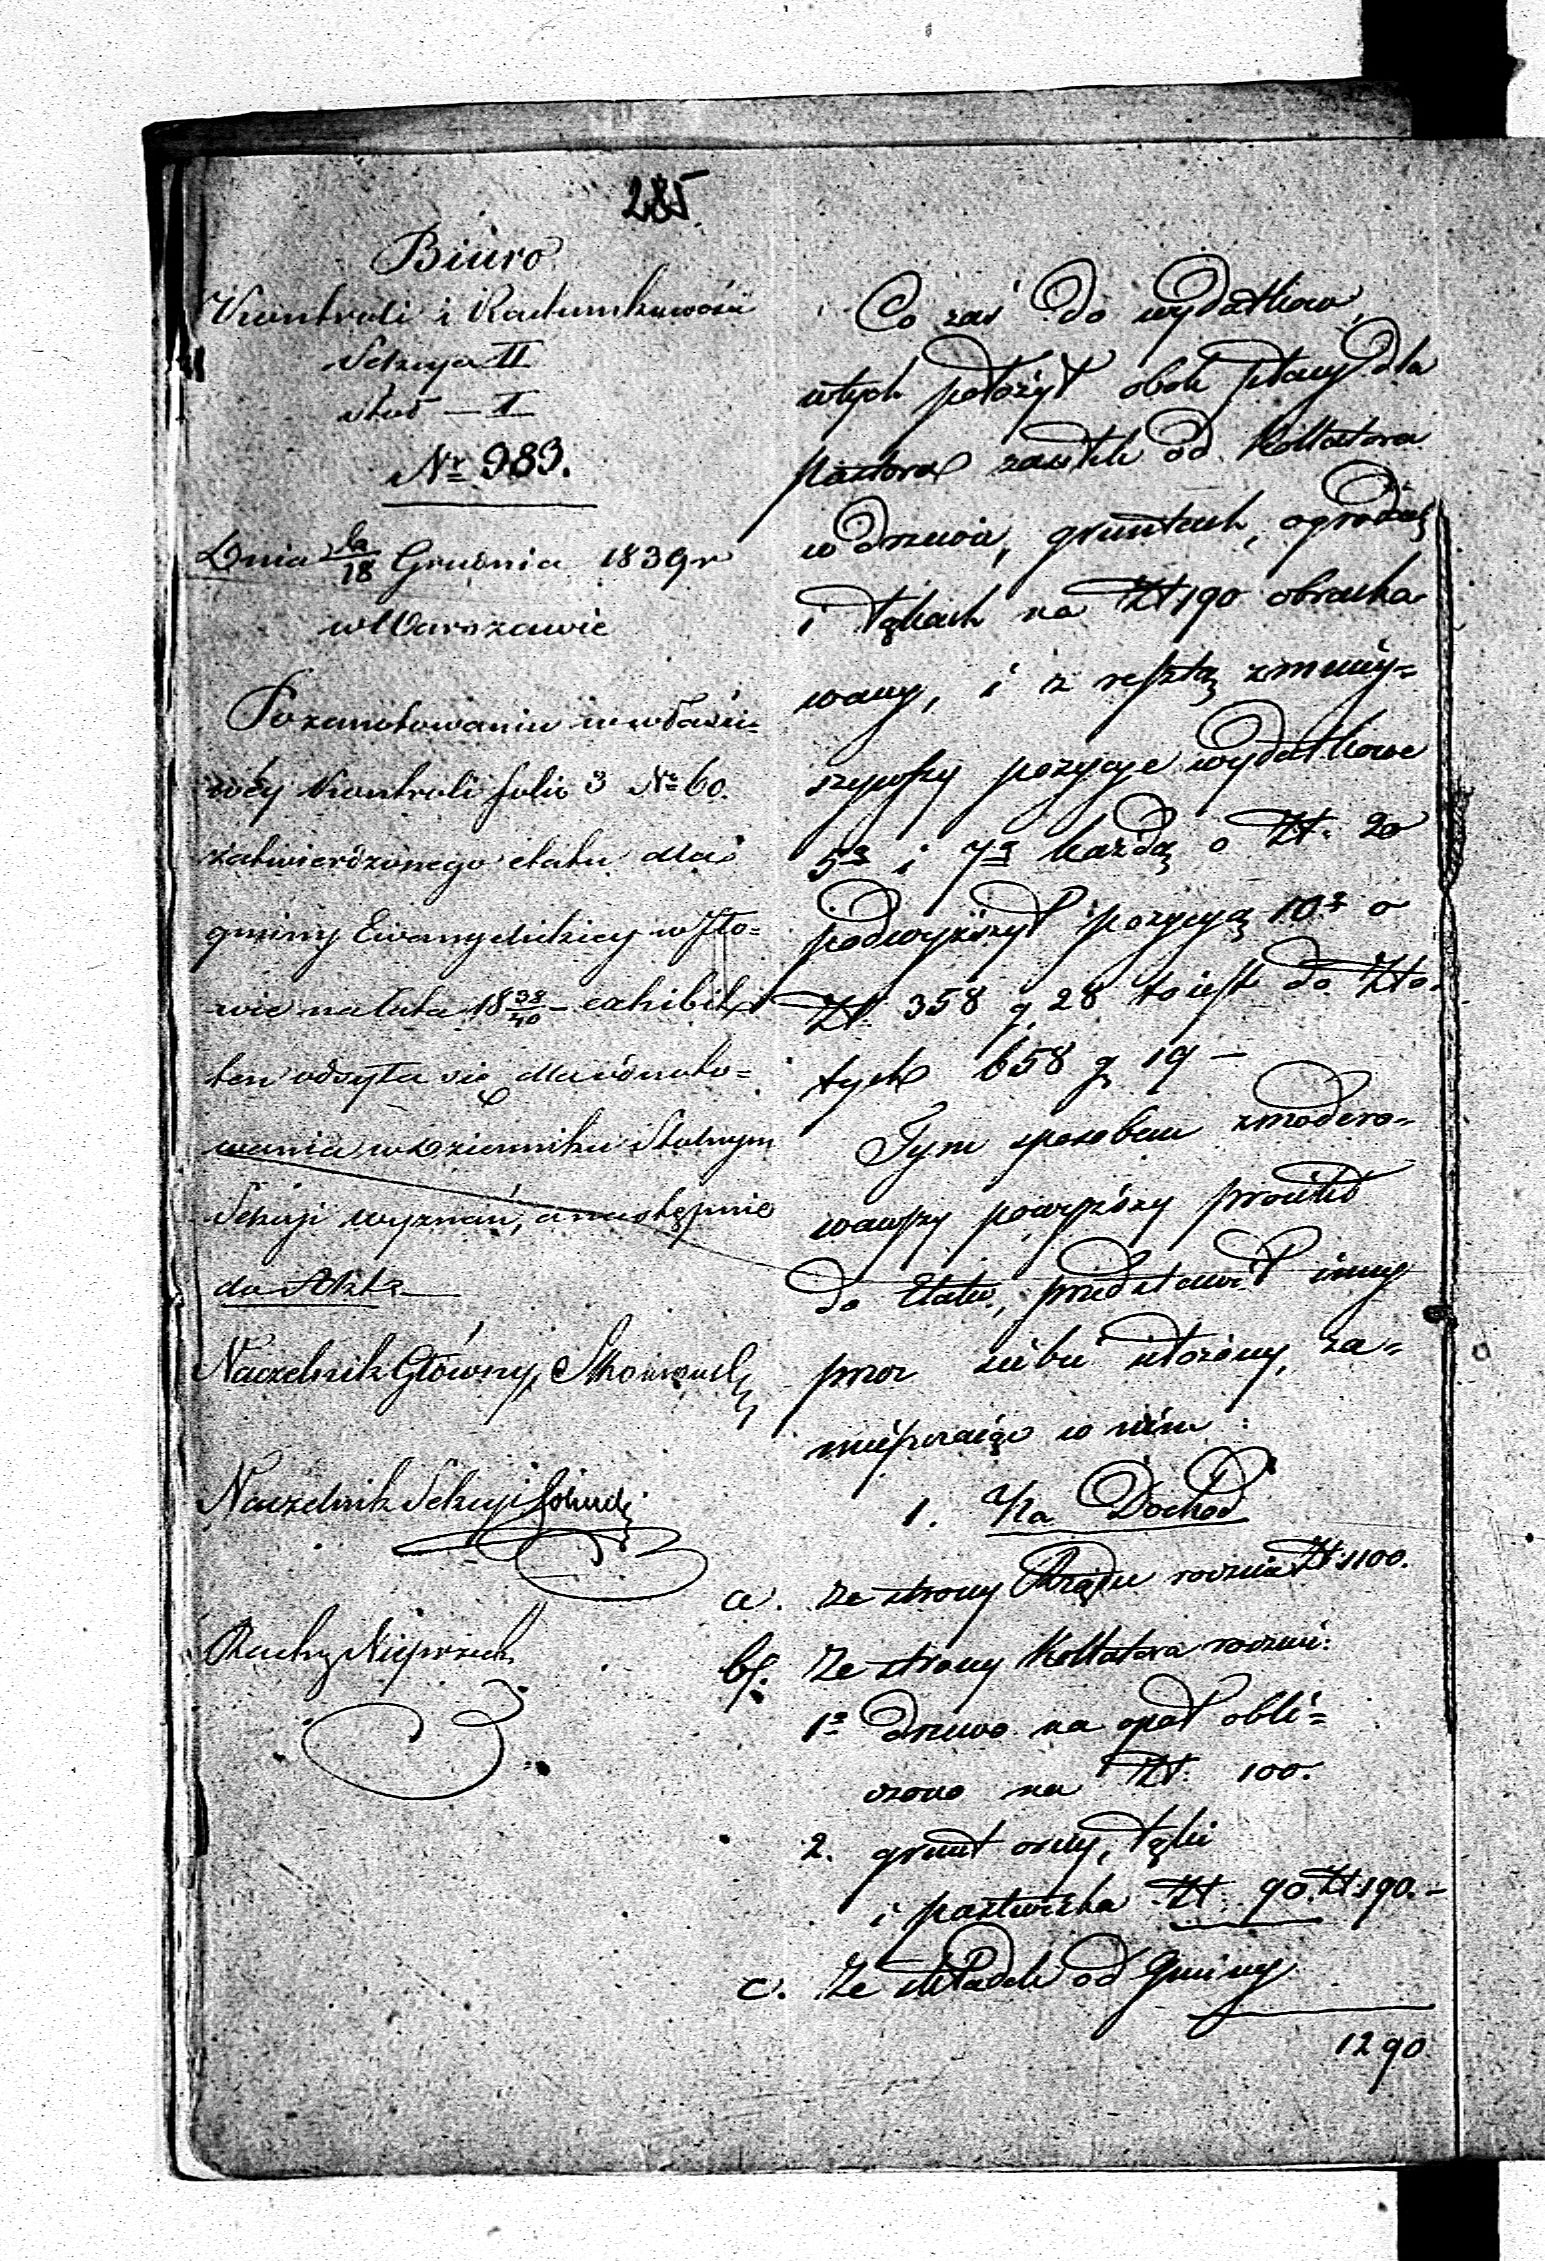 285
Biuro
Kontroli i Rachunkowości
Sekcya II
Stół — I
Nr 983.
Dnia 6/18 Grudnia 1839 r
w Warszawie
Po zanotowaniu w właści=
wéy Kontroli folio 3 Nr 60.
zatwierdzonego etatu dla
gminy Ewangelickiey w Iło=
wie na lata 18 38/40 — exhibit
ten odsyła się dla odnoto=
wania w Dzienniku Stolnym
Sekcyi wyznań, a następnie
do Akt.
Naczelnik Główny,
Naczelnik Sekcyi
Rachm:
Co zaś do wydatków,
w tych położył obok płacy dla
pastora zasiłek od Kollatora
w drzewie, gruntach, ogrodzie
i łąkach na Zł 190 obracho
wany, i z resztą zmniey=
szywszy pozycye wydatkowe
5ą i 7ą każdą o Zł. 20
podwyższył pozycyą 10ą o
Zł 358 g. 28 to iest do Zło=
tych 658 g 19 —
Tym sposobem zmodero=
wawszy powyższy proiekt
do Etatu, przedstawił inny
przez siebie ułożony, za=
mieszczaiąc w nim:
1. Na Dochód
a. Ze strony Rządu rocznie Zł: 1100.
b. Ze strony Kollatora roczni:
1o drzewo na opał obli=
czono na Zł. 100.
2. grunt orny, łąki
i pastwiska Zł. 90. Zł 190. —
c. Ze składek od Gminy
1290